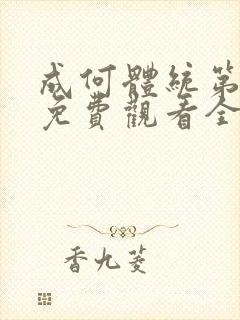 成何體統第
免費觀看全
香九菱